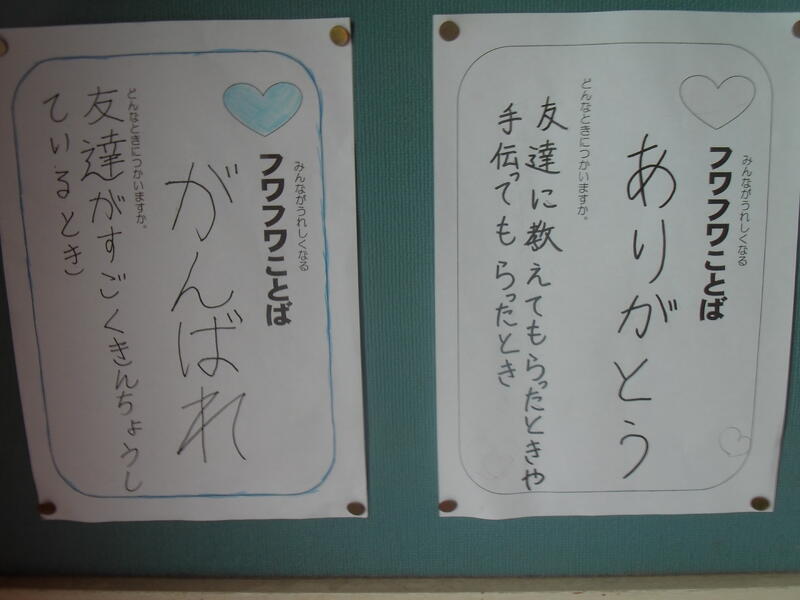 みんながうれしくなる
フワフワことば
ありがとう
どんなときにつかいますか。
友達に教えてもらったときや
手伝ってもらったとき
みんながうれしくなる
フワフワことば
がんばれ
どんなときにつかいますか。
友達がすごくきんちょうし
ているとき